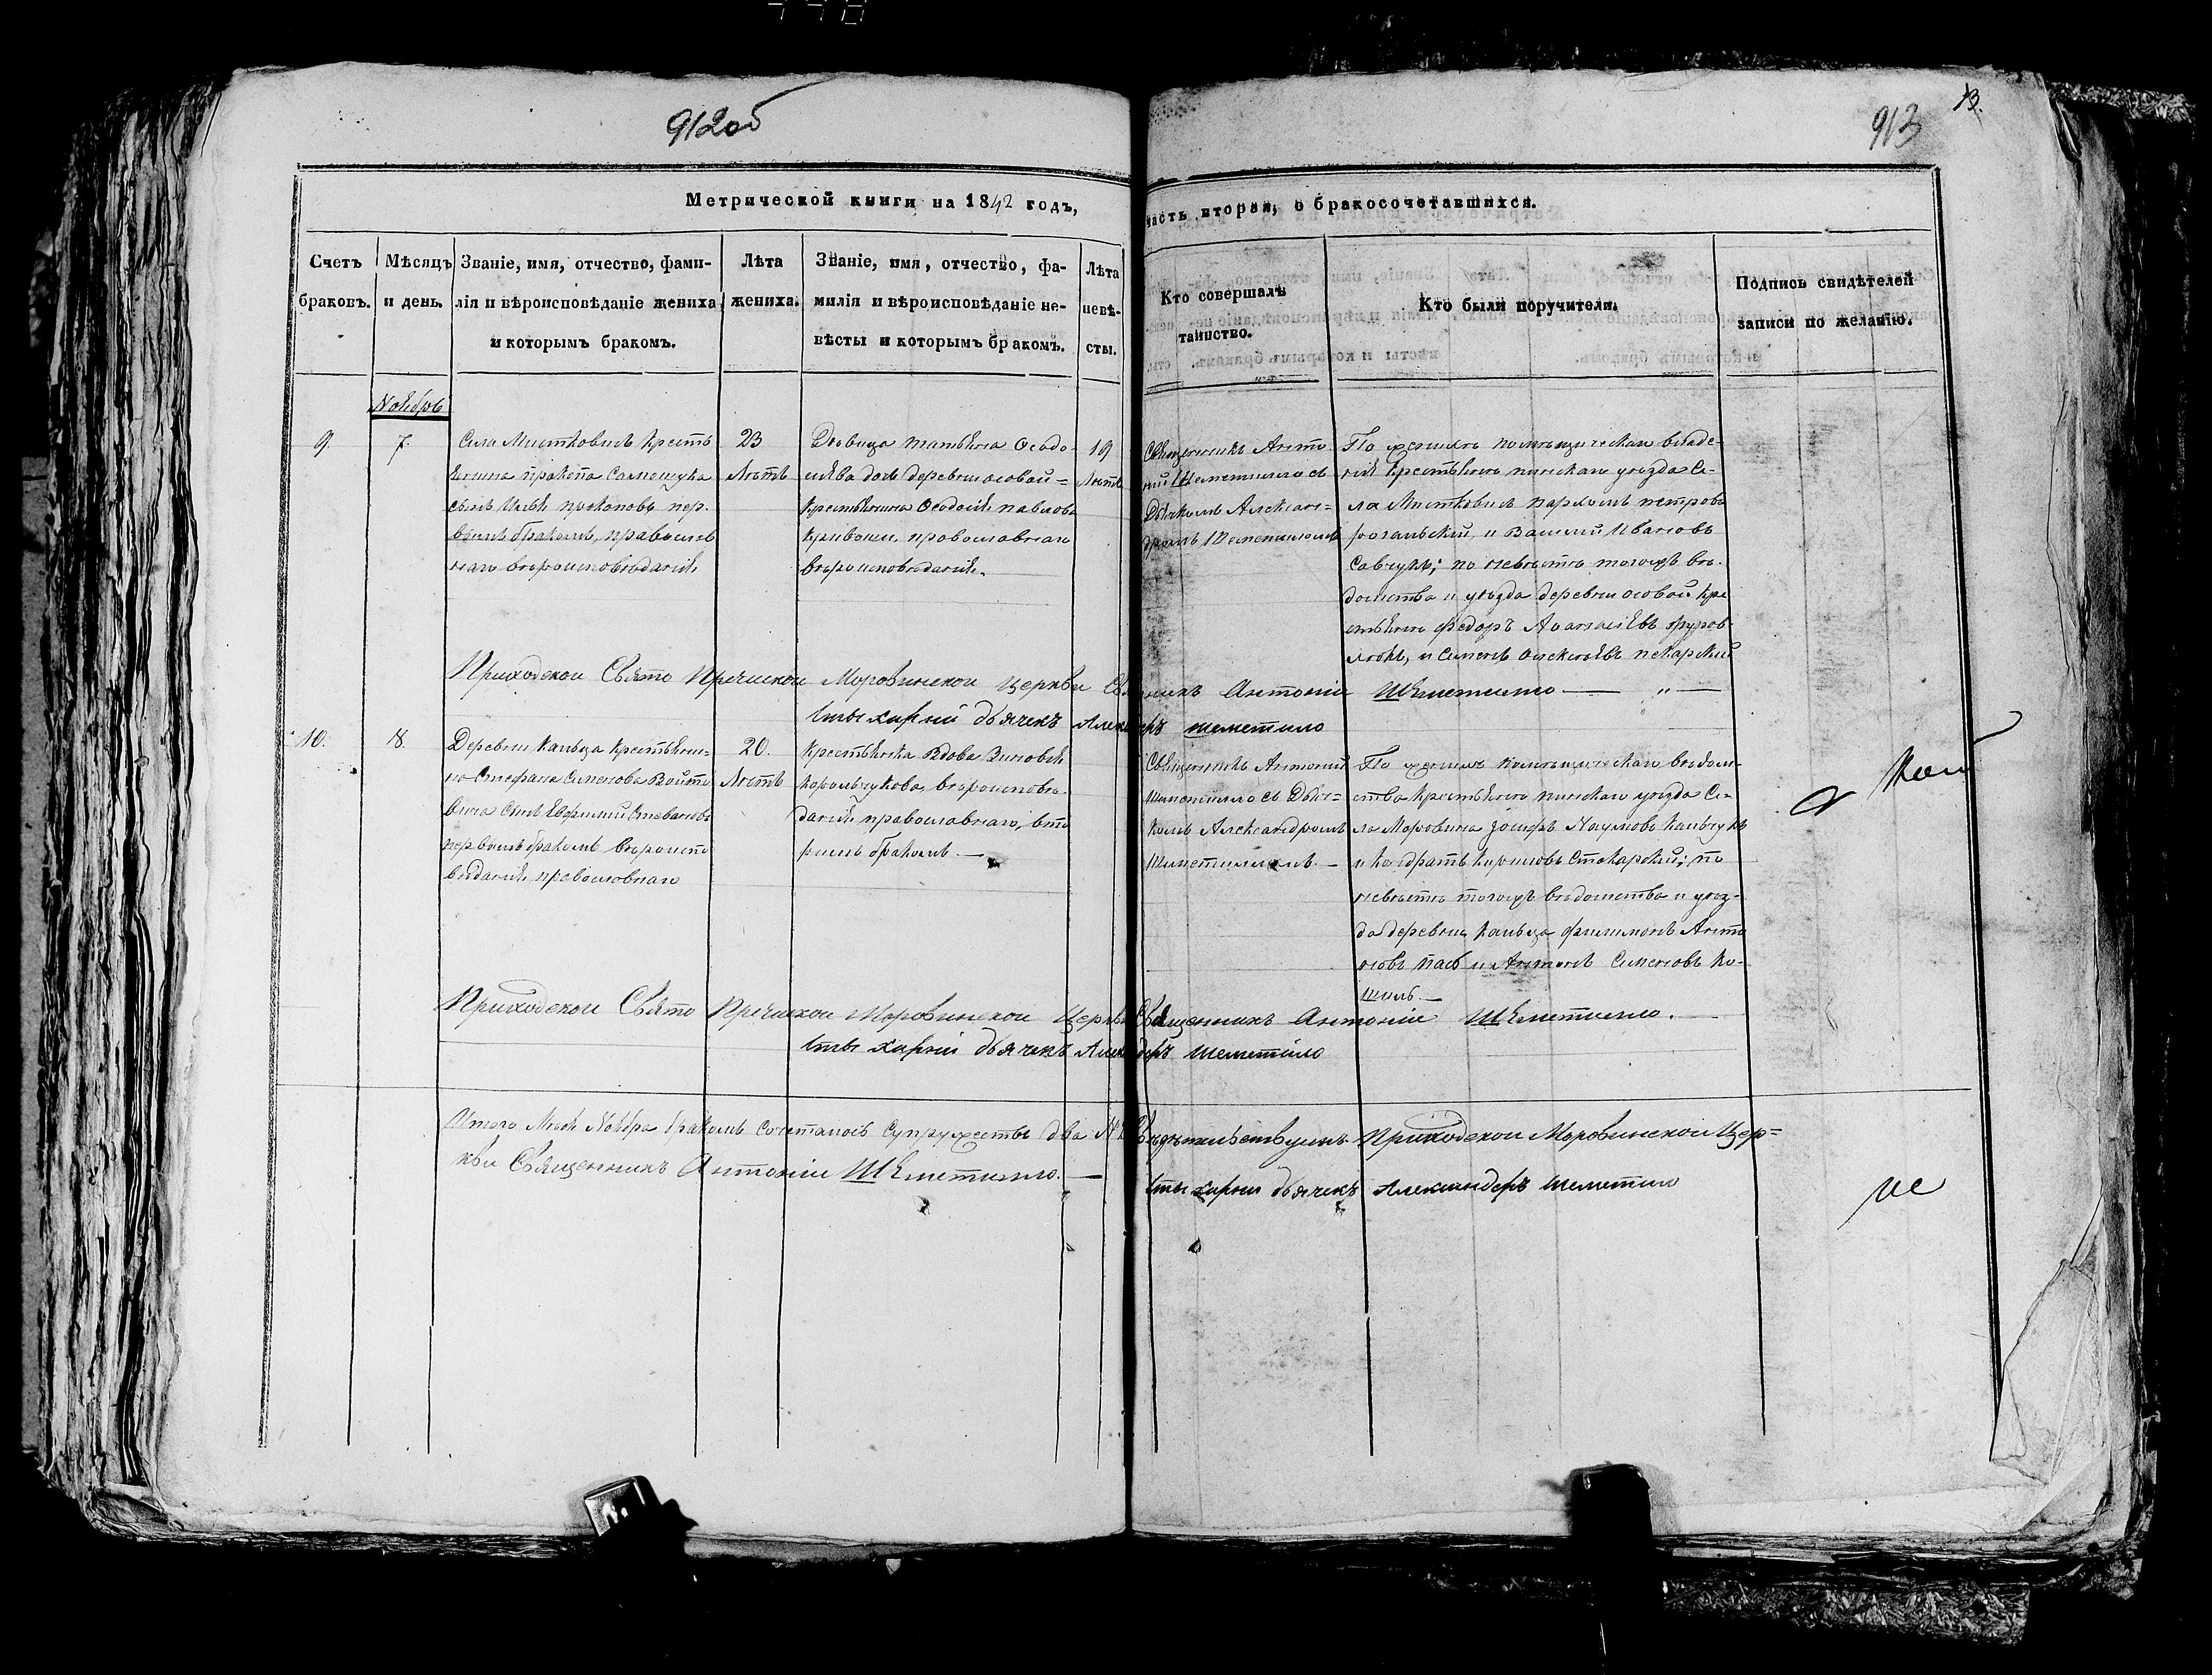 912об
913
13.
Метрической книги на 1842 годъ,
часть вторая, о бракосочетавшихся.
Счетъ браковъ.
Мѣсяцъ и день.
Званіе, имя, отчество, фами-
лія и вѣроисповѣданіе жениха
и которымъ бракомъ.
Лѣта
жениха.
Званіе, имя, отчество, фа-
милія и вѣроисповѣданіе не-
вѣсты и которымъ бракомъ.
Лѣта
невѣ-
сты.
Кто совершалъ
таинство.
Кто были поручители.
Подпись свидѣтелей
записи по желанію.
Ноября
9.
7.
Села Мистковичъ кресть
янина Самещука
сынъ Илья прокоповъ пер.
вымъ бракомъ, православ
наго вѣроисповѣданія
23
Лѣтъ
Дѣвица татьяна
дочь деревни осовой=
крестьянина павлова
Кривоши православнаго
вѣроисповѣданія.
19
Лѣтъ
Священникъ Анто
ній Шеметилло съ
Дьячкомъ Алексан=
дромъ Шеметиломъ
По женихѣ помѣщическаго владе-
нія крестьяне пинскаго уезда Се-
ла Мистковичъ пархомъ петровъ
рогальскій, и Василій Ивановъ
Савчукъ; по невѣстѣ тогожъ вѣ-
домства и уѣзда деревни осовой кре
стьяне федоръ
и Семенъ Алексѣевъ пекарскій
Приходской Свято Пречиской Моровинской церкви Священникъ Антоній Шеметилло — „ —
дьячекъ Александръ шеметило
10.
18.
Деревни Кальца крестьяни=
на Стефана Семенова Войто
вича Сынъ Евфимій Стевановъ
первымъ бракомъ вѣроиспо
вѣданія православнаго
20.
Лѣтъ
Крестьянка Вдова Зиновія
Корольчукова, вѣроисповѣ-
данія православнаго, вто
рымъ бракомъ. —
Священникъ Антоній
Шеметилло съ Дьяч=
комъ Александромъ
Шеметилломъ. —
По женихѣ помѣщическаго вѣдом-
ства крестьяне пинскаго уезда Се-
ла Моровина Наумовъ Кальчукъ
и Кондратъ Кириловъ Стокарскій; по
невѣстѣ тогожъ вѣдомства и уѣз-
да деревни Кальца филимонъ Анто
новъ и Антонъ Семеновъ Ко-
шиль. —
Приходской Свято Пречиской Моровинской Церкви Священникъ Антоній Шеметилло. —
дьячекъ Александеръ шеметило
Итого Ноября бракомъ сочеталось Супружествъ два № 2 Свидѣтельствуемъ Приходской Моровинской Цер=
кви Священникъ Антоній Шеметилло. —
дьячекъ Александеръ шеметило